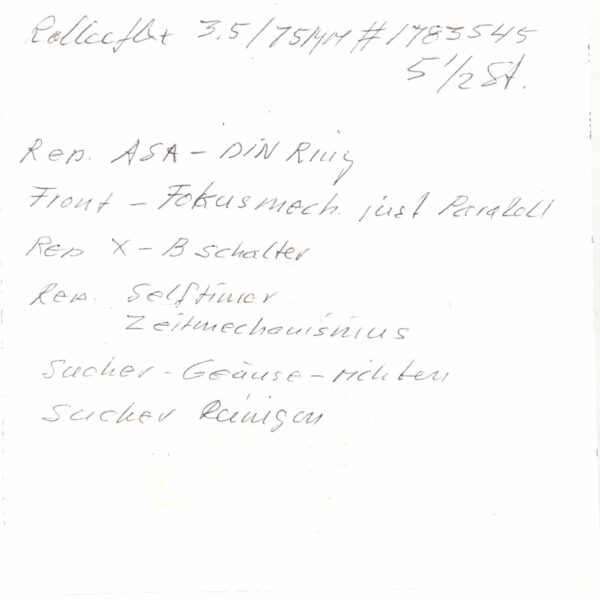 Rolleiflex 3.5/75MM #1783545
5 1/2 St.
Rep. ASA - DIN Ring
Front - Fokusmech. just Paralell
Rep X - B schalter
Rep. Selftimer
Zeitmechanismus
Sucher - Geäuse - richten
Sucher Reinigen